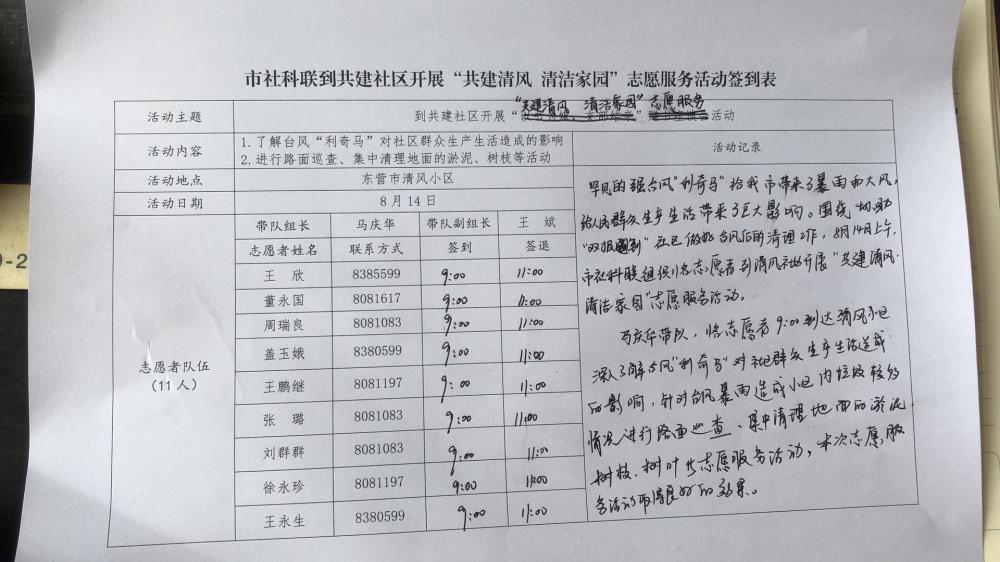 市社科联到共建社区开展“共建清风 清洁家园”志愿服务活动签到表
活动主题
到共建社区开展“共建清风 清洁家园”志愿服务活动
活动内容
1.了解台风“利奇马”对社区群众生产生活造成的影响
2.进行路面巡查、集中清理地面的淤泥、树枝等活动
活动记录
活动地点
东营市清风小区
活动日期
8月14日
志愿者队伍
(11人)
带队组长 马庆华 带队副组长 王 斌
志愿者姓名 联系方式 签到 签退
王 欣 8385599 9:00 11:00
董永国 8081617 9:00 11:00
周瑞良 8081083 9:00 11:00
盖玉娥 8380599 9:00 11:00
王鹏继 8081197 9:00 11:00
张 璐 8081083 9:00 11:00
刘群群 8081083 9:00 11:00
徐永珍 8081197 9:00 11:00
王永生 8380599 9:00 11:00
罕见的强台风“利奇马”给我市带来了暴雨和大风,
给人民群众生产生活带来了巨大影响。围绕
“双报到”社区做好台风后的清理工作,8月14日上午,
市社科联组织11名志愿者到清风社区开展“共建清风·
清洁家园”志愿服务活动。
马庆华带队,志愿者9:00到达清风小区
深入了解台风“利奇马”对社区群众生产生活造成
的影响,针对台风暴雨造成小区内垃圾较多
情况进行路面巡查、集中清理地面的淤泥
树枝、树叶等志愿服务活动,本次志愿服
务活动取得良好的效果。